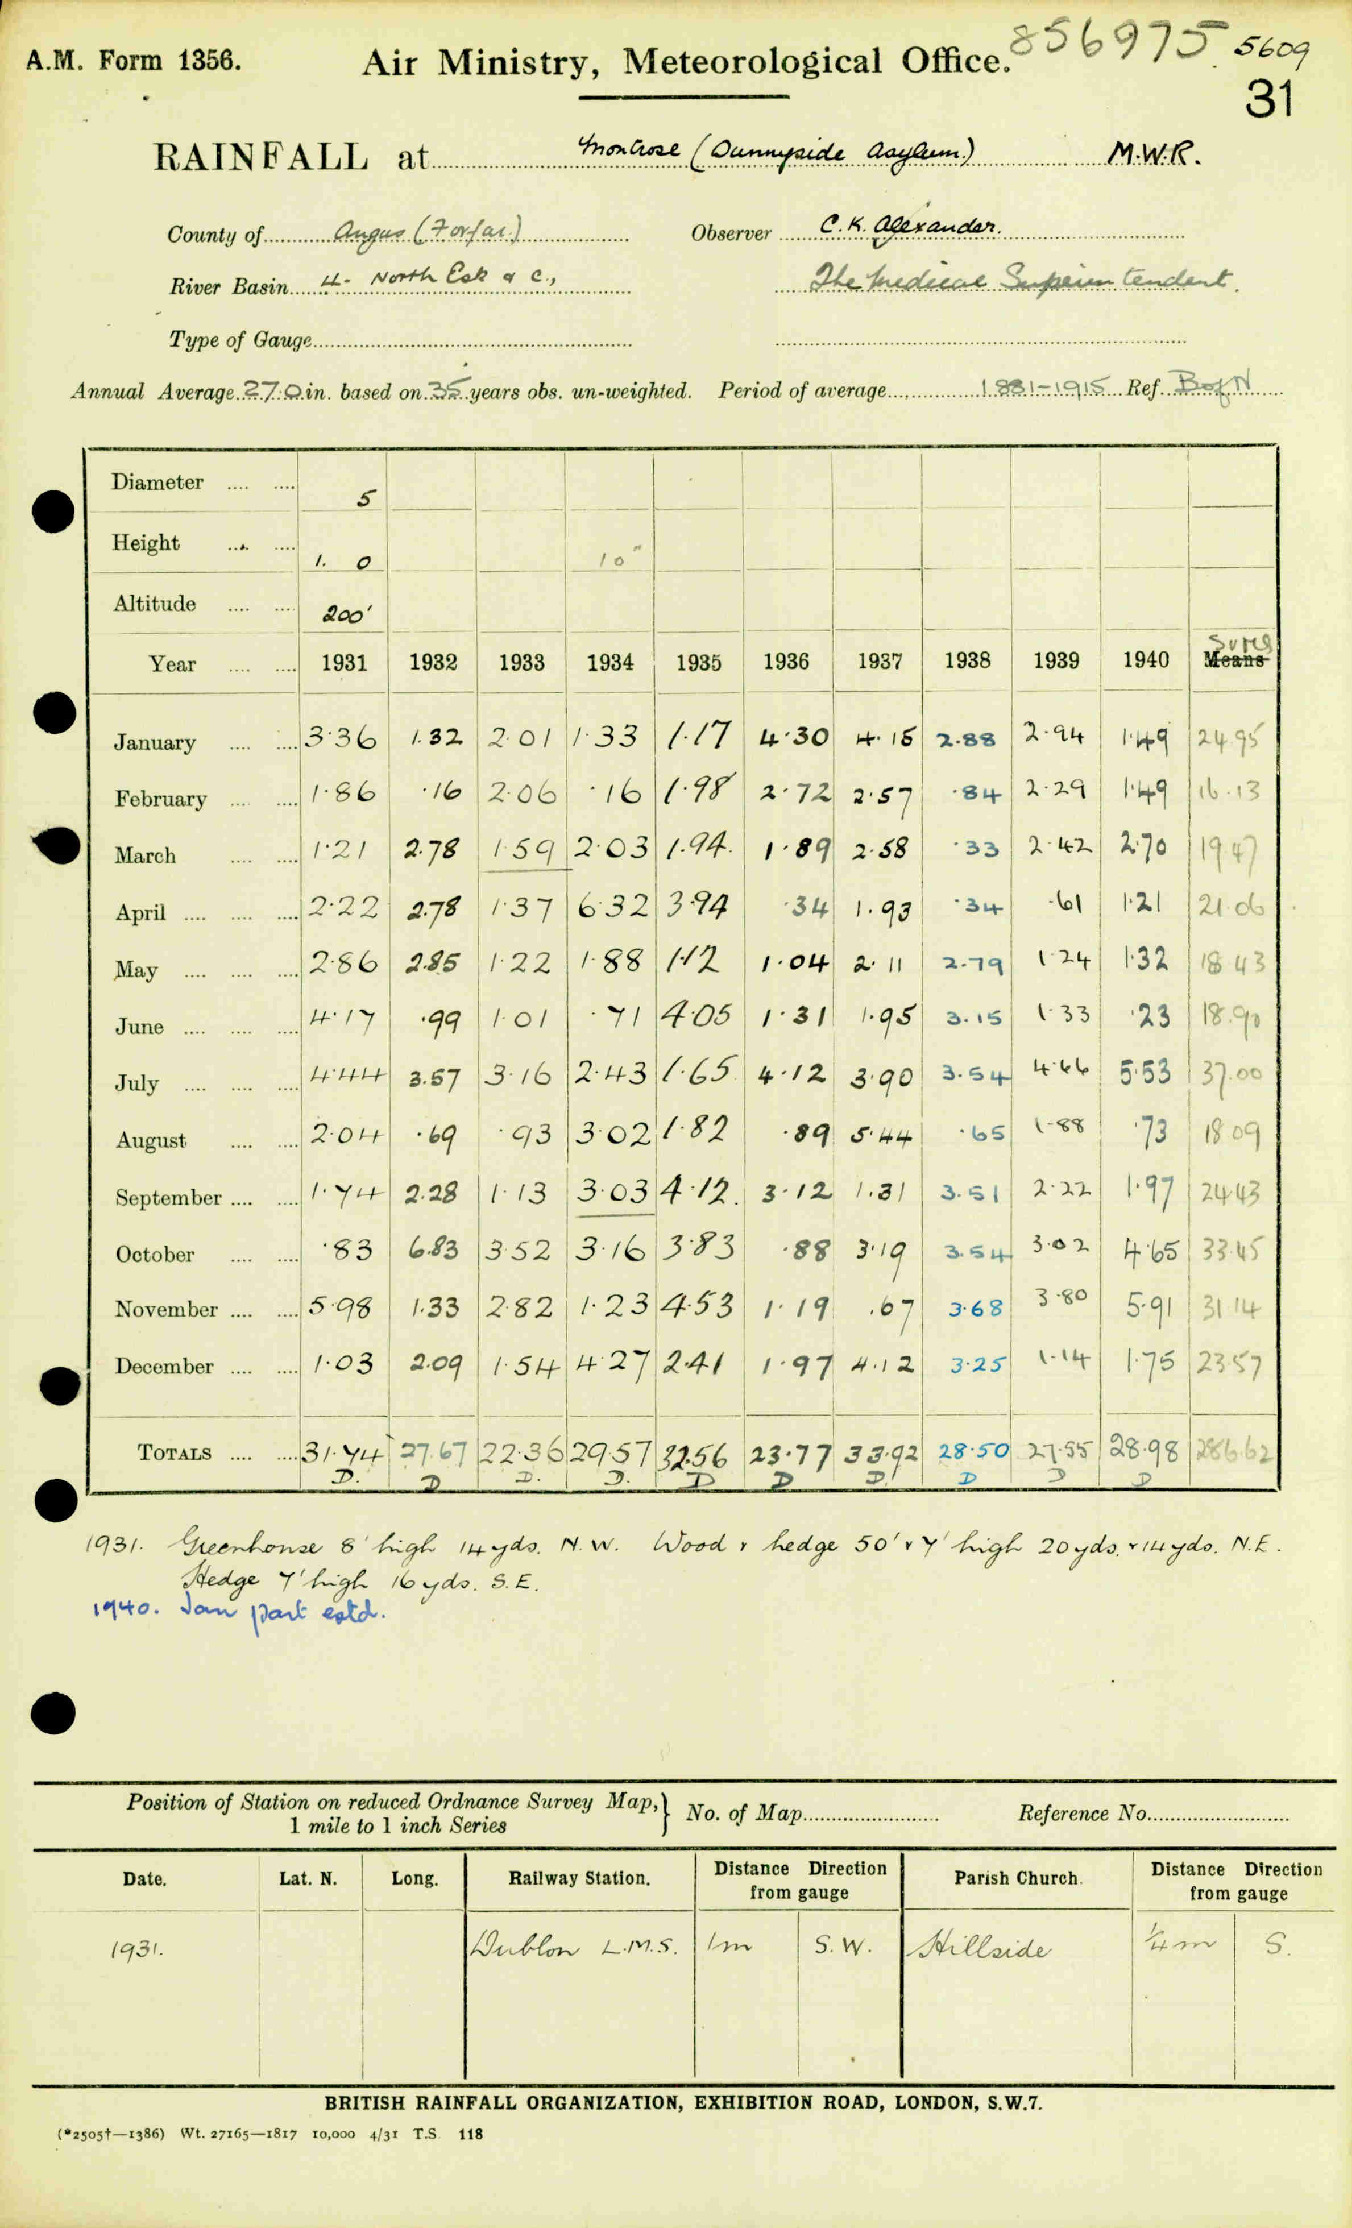 A.M. Form 1356. Air Ministry, Meteorological Office. 856975 5609
31
RAINFALL at Montrose (Sunnyside Asylum) M.W.R.
County of Angus (Forfar) Observer C. K. Alexander.
River Basin 4. North Esk & c., The Medical Superintendent.
Type of Gauge
Annual Average 27.0 in. based on 35 years obs. un-weighted. Period of average 1881-1915 Ref. B of N
Diameter 5
Height 1. 0 10"
Altitude 200'
Sums
Year 1931 1932 1933 1934 1935 1936 1937 1938 1939 1940 Means
January 3.36 1.32 2.01 1.33 1.17 4.30 4.15 2.88 2.94 1.49 24.95
February 1.86 .16 2.06 .16 1.98 2.72 2.57 .84 2.29 1.49 16.13
March 1.21 2.78 1.59 2.03 1.94 1.89 2.58 .33 2.42 2.70 19.47
April 2.22 2.78 1.37 6.32 3.94 .34 1.93 .34 .61 1.21 21.06
May 2.86 2.85 1.22 1.88 1.12 1.04 2.11 2.79 1.24 1.32 18.43
June 4.17 .99 1.01 .71 4.05 1.31 1.95 3.15 1.33 .23 18.90
July 4.44 3.57 3.16 2.43 1.65 4.12 3.90 3.54 4.66 5.53 37.00
August 2.04 .69 .93 3.02 1.82 .89 5.44 .65 1.88 .73 18.09
September 1.74 2.28 1.13 3.03 4.12 3.12 1.31 3.51 2.22 1.97 24.43
October .83 6.83 3.52 3.16 3.83 .88 3.19 3.54 3.02 4.65 33.45
November 5.98 1.33 2.82 1.23 4.53 1.19 .67 3.68 3.80 5.91 31.14
December 1.03 2.09 1.54 4.27 2.41 1.97 4.12 3.25 1.14 1.75 23.57
TOTALS 31.74 27.67 22.36 29.57 32.56 23.77 33.92 28.50 27.55 28.98 286.62
D. D D. D. D D D. D D D
1931. Greenhouse 8' high 14 yds. N.W. Wood & hedge 50' & 7' high 20 yds. & 14 yds. N.E.
Hedge 7' high 16 yds. S.E.
1940. Jan part estd.
Position of Station on reduced Ordnance Survey Map, 1 mile to 1 inch Series } No. of Map Reference No.
Date. Lat. N. Long. Railway Station. Distance Direction from gauge Parish Church. Distance Direction from gauge
1931. Dubton L.M.S. 1m S.W. Hillside ¼m S.
BRITISH RAINFALL ORGANIZATION, EXHIBITION ROAD, LONDON, S.W.7.
(*2505†—1386) Wt. 27165—1817 10,000 4/31 T.S. 118